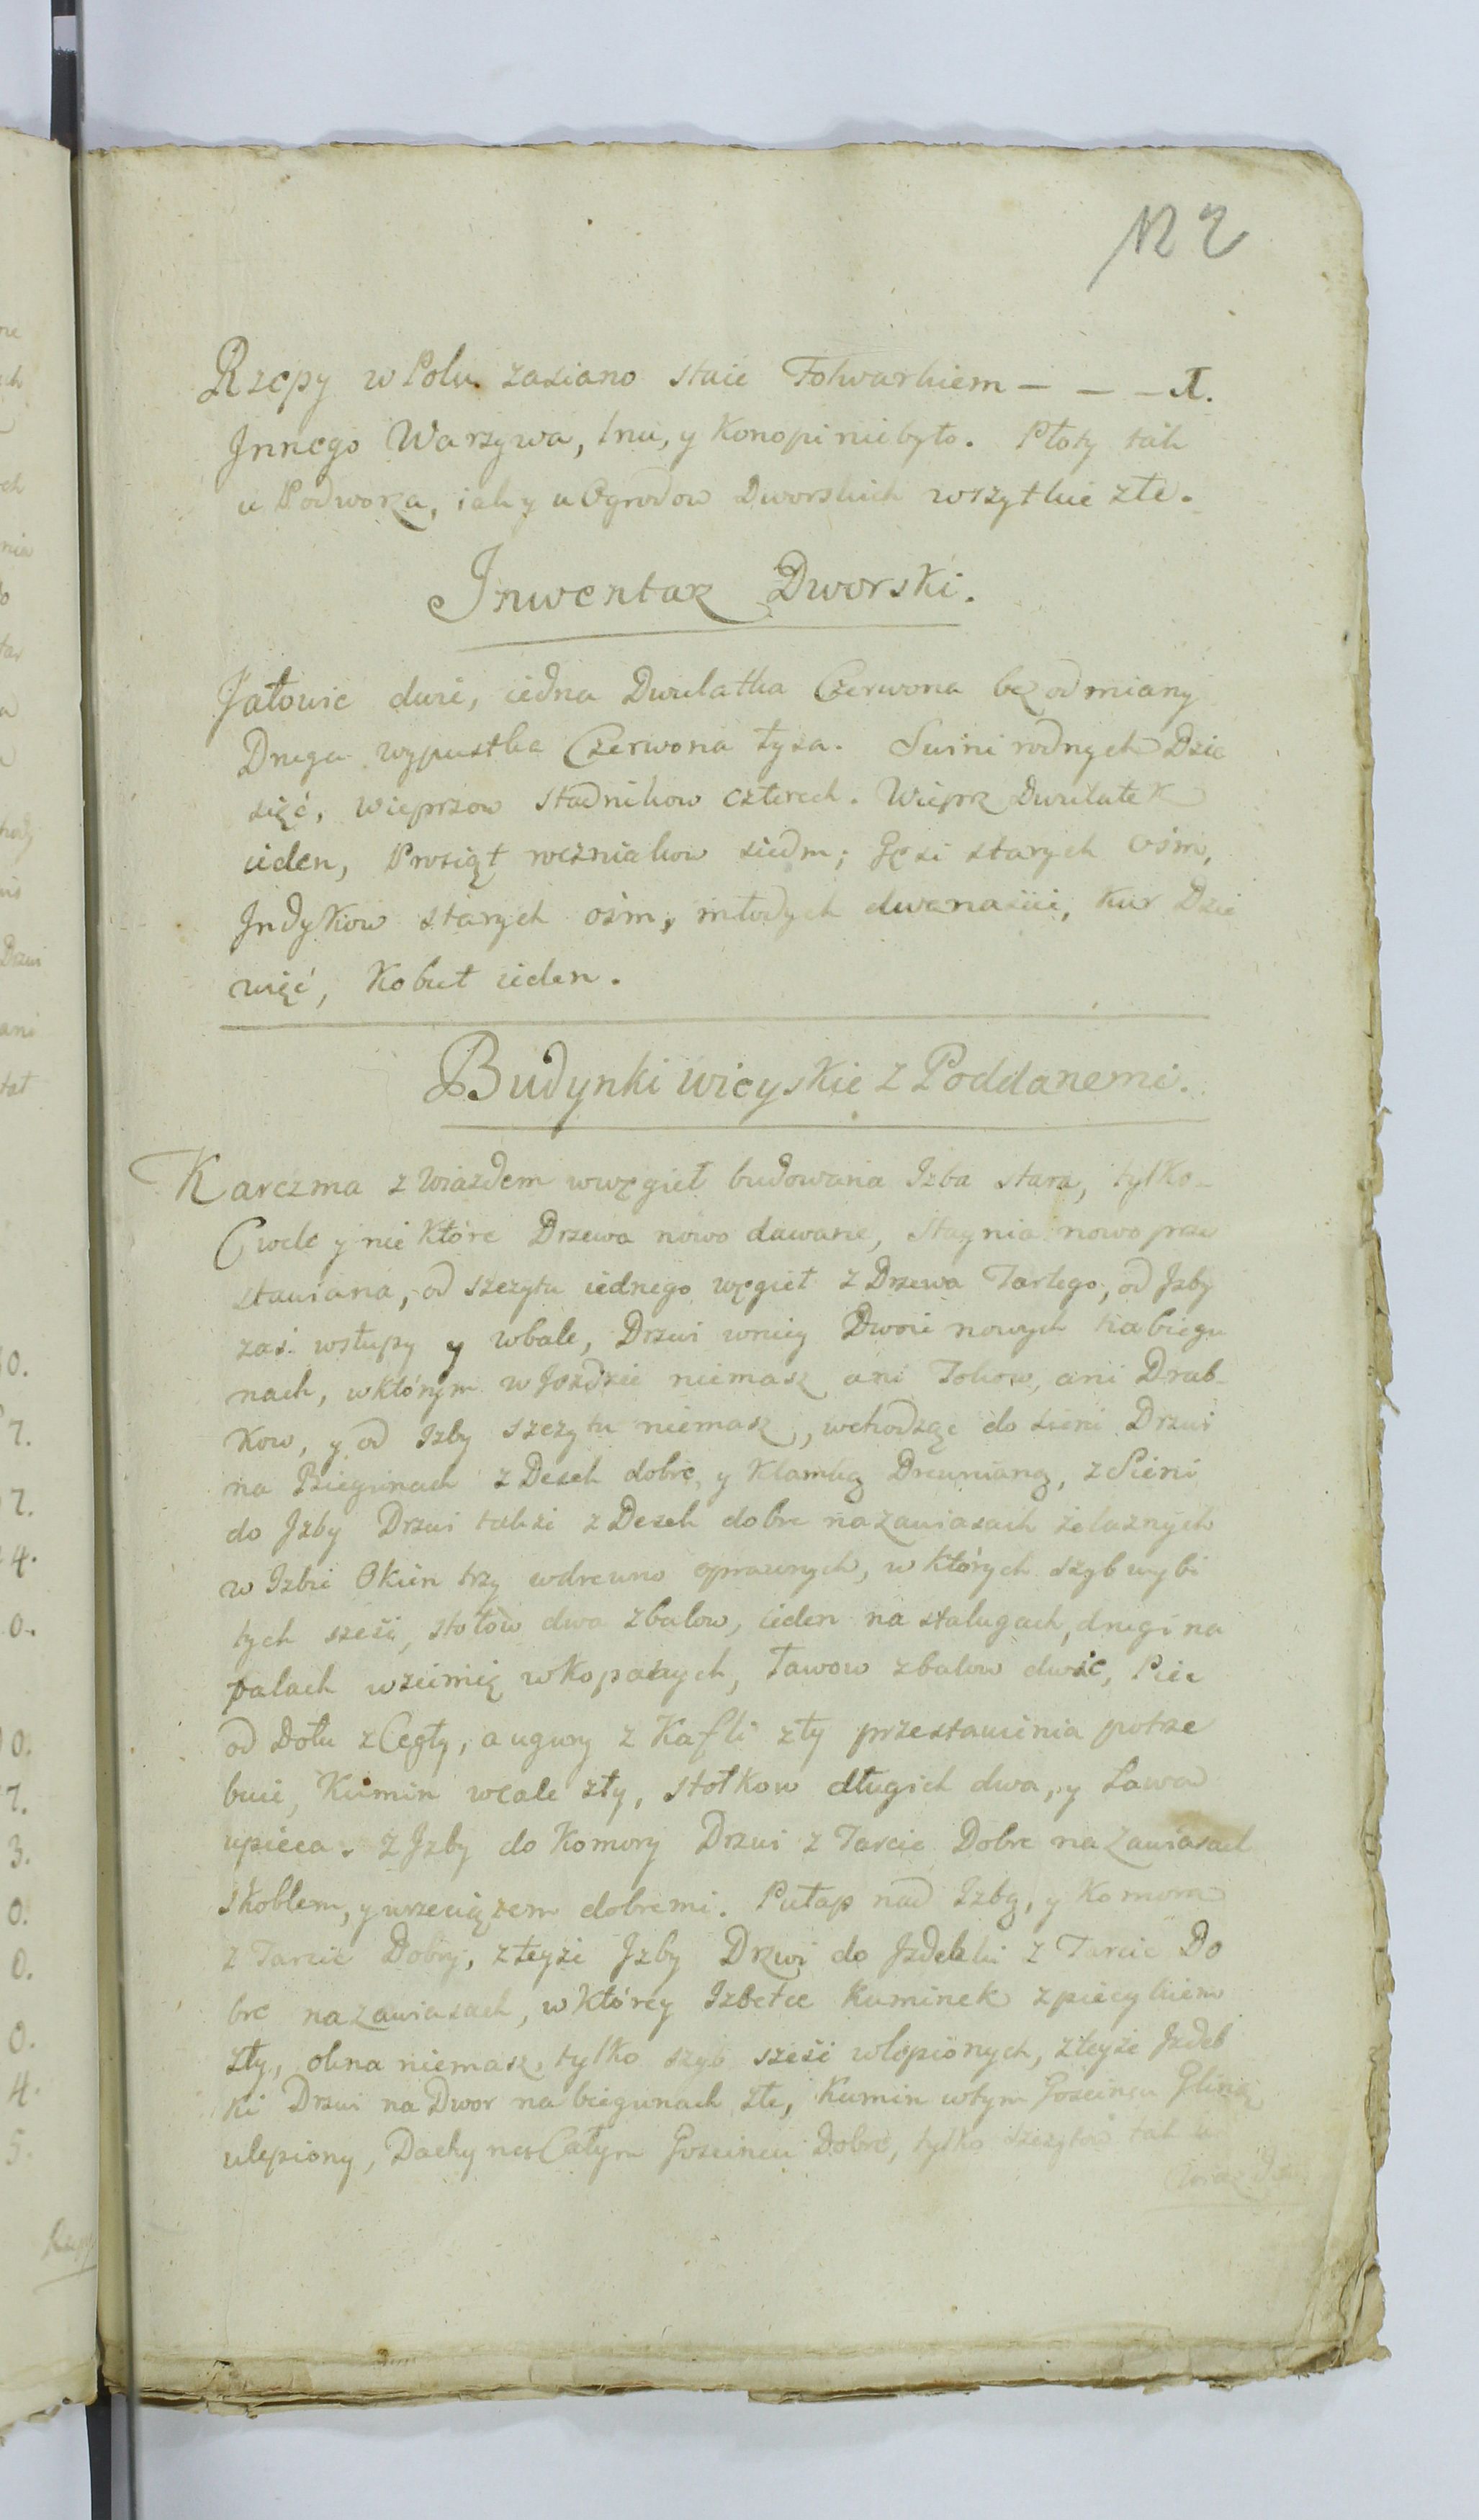 122
Rzepy w Polu zasiano staie Folwarkiem — — — I.
Jnnego Warzywa, lnu, y Konopi niebyło. Płoty tak
u Podworza, iak y u Ogrodow Dworskich wszytkie złe.
Jnwentarz Dworski.
Jałowic dwie, iedna Dwulatka Czerwona bez odmiany
Druga wypustka Czerwona łysa. Swini rodnych Dzie
sięć, wieprzow stadnikow czterech. Wieprz Dwulatek
ieden, Prosiąt roczniakow siedm; Gęsi starych ośm,
Jndykow starych ośm, młodych dwanaście, kur Dzie
więć, Kobut ieden.
Budynki wieyskie z Poddanemi.
Karczma z wiazdem wwęgieł budowana Izba stara, tylko
Cwele y nie które Drzewa nowo dawane, staynia nowo prze
stawiana, od szczytu iednego węgieł z Drzewa Tartego, od Jzby
zaś wstupy y wbale, Drzwi wniey Dwoie nowych na biegu
nach, wktórym wJeździe niemasz ani Tokow, ani Drab-
kow, y od Izby szczytu niemasz, wchodząc do sieni Drzwi
na Biegunach z Desek dobre, y Klamką Drewnianą, z Sieni
do Jzby Drzwi także z Desek dobre na zawiasach żelaznych
w Izbie Okien trzy wdrewno oprawnych, w których szyb wybi
tych sześć, stołow dwa zbalow, ieden na stalugach, drugi na
palach wziemię wkopanych, ławow zbalow dwie, Piec
od Dołu z Cegły, a ugury z Kafli zły przestawienia potrze
buie, Kumin wcale zły, stołkow długich dwa, y Ława
upieca. z Jzby do Komory Drzwi z Tarcic Dobre na Zawiasach
skoblem, y wrzeciązem dobremi. Pułap nad Izbą, y Komora
z Tarcic Dobry, zteyże Jzby Drzwi do Jzdebki z Tarcic Do
bre na zawiasach, w którey Izbetce Kuminek zpiecykiem
zły, okna niemasz, tylko szyb sześć wlepionych, zteyże Jzdeb
ki Drzwi na Dwor na biegunach złe, Kumin wtym Gościncu Gliną
ulepiony, Dachy na Całym Goscincu Dobre, tylko szczytow tak u
Wiazdu